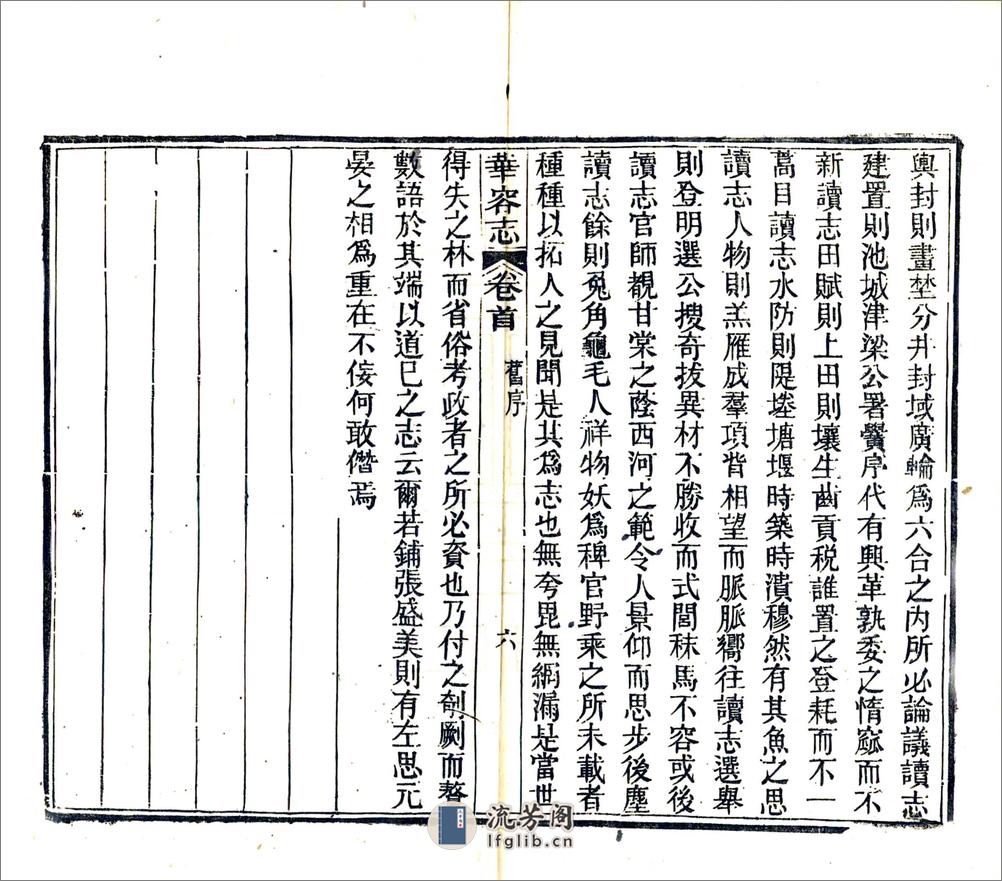 輿封則畫埜分井封域廣輪爲六合之内所必論議讀志
建置則池城津梁公署黌序代有興革孰委之惰窳而不
新讀志田賦則上田則壤生齒貢税誰置之登耗而不一
蒿目讀志水防則隄塍塘堰時築時潰穆然有其魚之思
讀志人物則羔雁成羣項背相望而脈脈嚮往讀志選舉
則登明選公搜奇拔異材不勝收而式閭秣馬不容或後
讀志官師覩甘棠之蔭西河之範令人景仰而思步後塵
讀志餘則兔角龜毛人祥物妖爲稗官野乘之所未載者
種種以拓人之見聞是其爲志也無夸毘無綱漏是當世
華容志 卷首 舊序 六
得失之林而省俗考政者之所必資也乃付之剞劂而弁
數語於其端以道已之志云爾若鋪張盛美則有左思元
晏之相爲重在不佞何敢僭焉
流芳阁
lfglib.cn